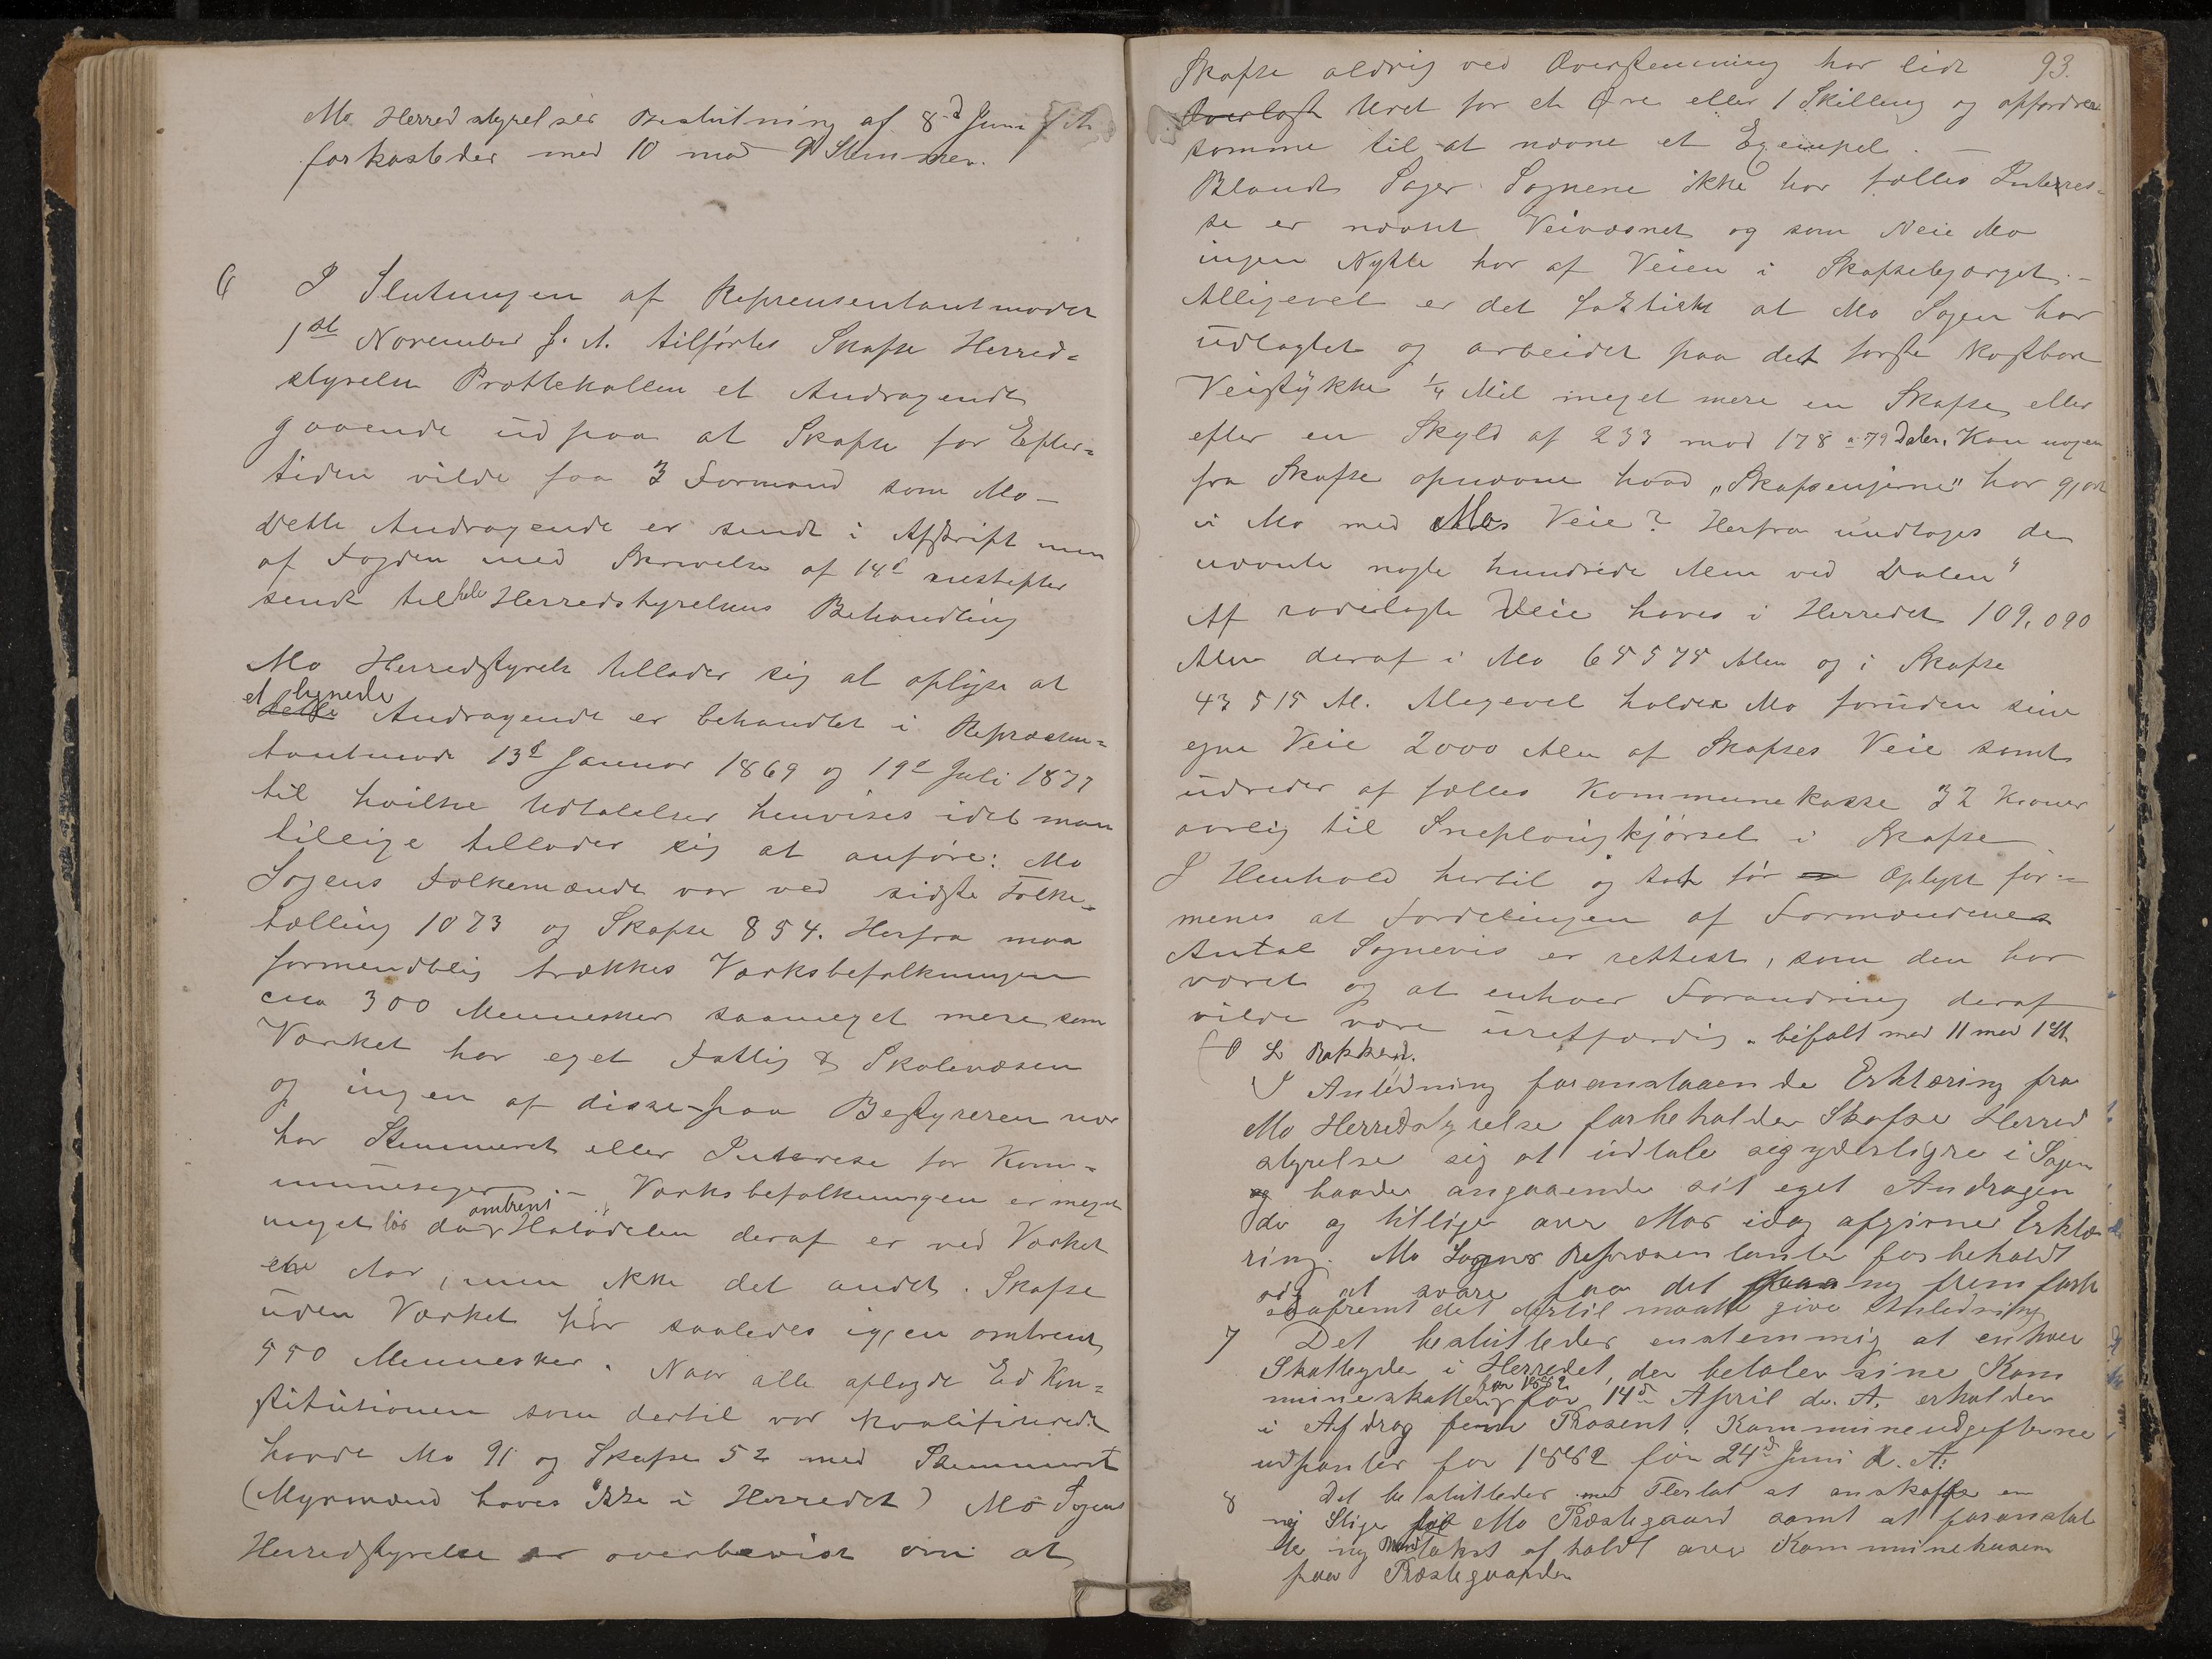 Mo Herredstyrelses Beslutning af 8d Juni f. A.
forkastedes med 10 mod 9 Stemmer.
6 I Slutningen af Reprensentantmødet
1ste November f. A. tilførtes Skafse Herred=
styrelse Prottekollen et Andragende
gaaende ud paa at Skafse for Efter=
tiden vilde faa 3 Formænd som Mo –
Dette Andragende er sendt i Afskrift men
af Fogden med Skrivelse af 14d næstefter
sendt til hele Herredstyrelsens Behandling
Mo Herredstyrelse tillader sig at oplyse at
et lignende
dette Andragende er behandlet i Repræsen=
tantmøde 13d Januar 1869 og 19d Juli 1877
til hvilke Udtalelser henvises idet man
tillige tillader sig at anføre: Mo
Sogens Folkemænde var ved sidste Folke=
tælling 1073 og Skafse 854. Herfra maa
formendtlig trækkes Værksbefolkningen
cica 300 Mennesker saameget mere som
Værket har eget Fattig & Skolevæsen
og ingen af disse paa Bestyreren nær
har Stemmeret eller Interese for Kom=
munesager – Værksbefolkningen er meget
meget løs da omtrent Halvdelen deraf er ved Værket
et Aar, men ikke det andet. Skafse
uden Værket har saaledes igjen omtrent
550 Mennesker. Naar alle aflagde Ed Kon=
stitutionen som dertil var kvalifiserede
havde Mo 91 og Skafse 52 med Stemmeret
(Myrmænd haves ikke i Herredet) Mo Sogens
Herredstyrelse er overbevist om at
93.
Skafse aldrig ved Overstemning har lidt
Overlast Uret for et Øre eller 1 Skilling og opfordrer
samme til at nævne et Exempel. –
Blandt Sager Sognene ikke har fælles Interes=
se er nævnt Veivæsnet og som Neie Mo
ingen Nytte har af Veien i Skafsebjørget. –
Alligevel er det faktisk at Mo Sogen har
udlagtet og arbeidet paa det første kostbare
Veistykke 1/4 Mil meget mere en Skafse eller
efter en Skyld af 233 mod 178 a 79 Daler. Kan nogen
fra Skafse opnævne hvad „Skafsengjerne" har gjort
i Mo med Mos Veie? Herfra undtages de
nævnte nogle hundrede Alen ved Dalen"
Af rodelagte Veie haves i Herredet 109,090
Alen deraf i Mo 65575 Alen og i Skafse
43 515 Al. Alegevel holder Mo foruden sine
egne Veie 2000 Alen af Skafses Veie samt
udreder af fælles Kommunekasse 32 Kroner
aarlig til Sneplougkjørsel i Skafse
I Henhold hertil og hvad før er Oplyst for=
menes at Fordelingen af Formændenes
Antal Sognevis er rettest, som den har
været og at enhver Forandring deraf
vilde være uretfærdig. bifalt mod 11 mod 1 St.
(O L Bakken).
I Anledning foranstaaende Erklæring fra
Mo Herredstyrelse forbeholder Skafse Herred
styrelse sig at udtale sig yderligre i Sagen
og baade angaaende sit eget Andragen
de og tillige over Mos idag afgivne Erklæ
ring. Mo Sogns Repræsentanter forbeholdt
sig at svare paa det paa ny fremførte
saafremt det dertil maatte give Anledning
7 Det besluttedes enstemmig at enhver
Skatteyde i Herredet, der betaler sine Kom
muneskatter for 1882 før 14d April d. A. erholder
i Afdrag fem Prosent. Kommuneudgifterne
udpantes for 1882 før 24d Juni d. A.
8 Det besluttedes med Flertal at anskaffe en
ny Stige til Mo Præstegaard samt at foranstal
te ny Brandtakst afholdt over Kommunehusene
paa Præstegaarden